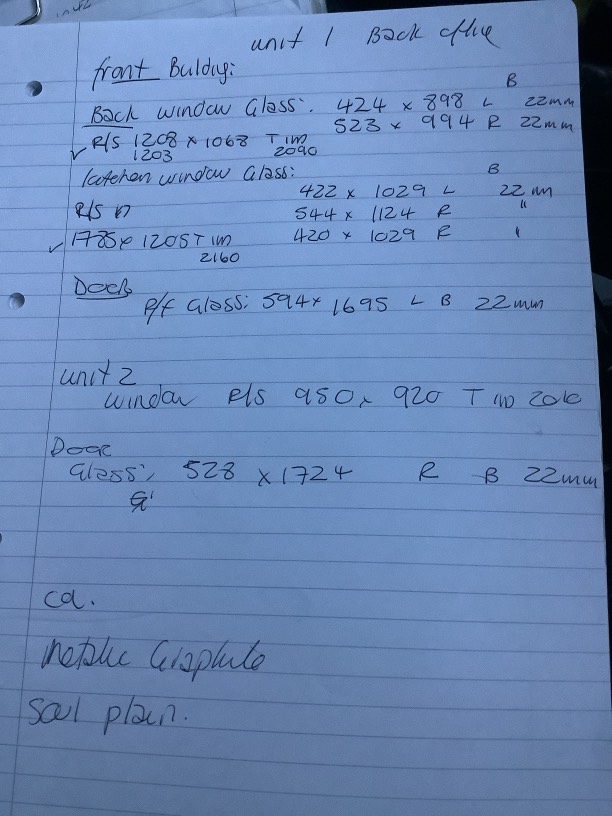 unit 1 Back office
front Buildig:
B
Back window Glass: 424 x 898 L 22mm
523 x 994 R 22mm
✓ R/S 1208 x 1068 T IM
1203 2090
window Glass: B
422 x 1029 L 22 m
R/S 544 x 1124 R "
✓ 1785x 1205 T IM 420 x 1029 R '
2160
Door
P/f Glass: 594x 1695 L B 22mm
unit 2
window R/S 950 x 920 T 2010
Door
Glass: 528 x 1724 R B 22mm
G'
Metalic Graphite
plain.